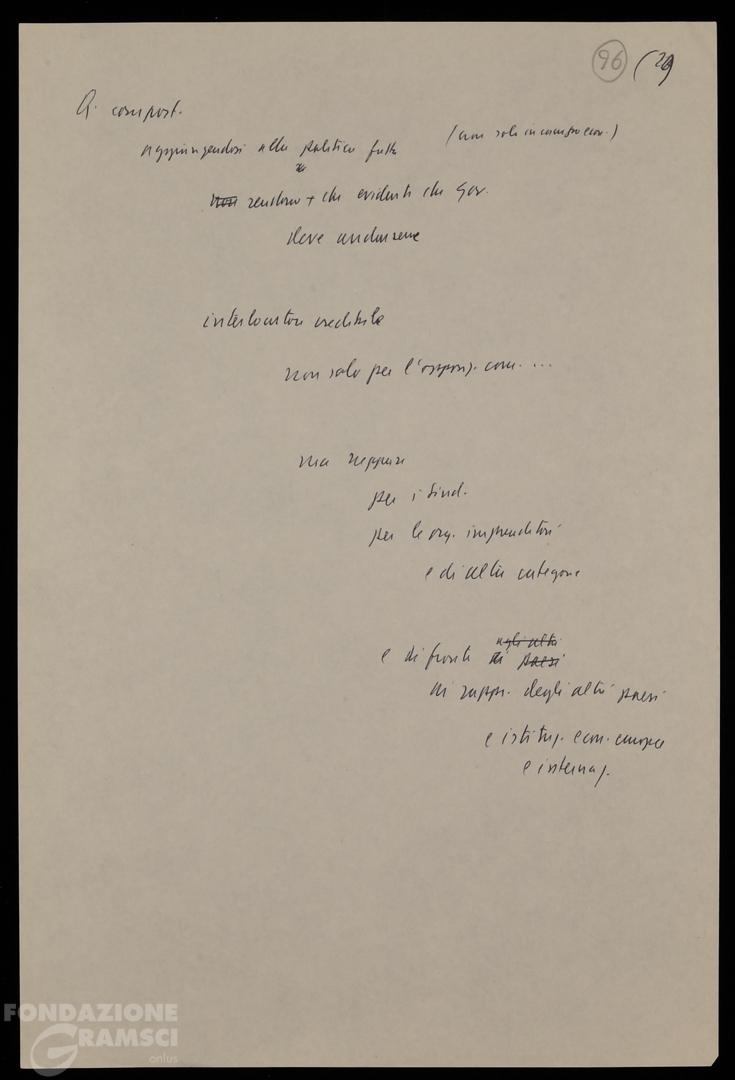 96 (29
Q. comport.
aggiungendosi alla politica fatta (non solo in campo econ.)
non rendono + che evidente che Gov.
deve andarsene
interlocutore credibile
non solo per l'oppos. com. ...
ma neppure
per i Sind.
per le org. imprenditori
e di altre categorie
agli altri
e di fronte ai paesi
ai rappr. degli altri paesi
e istituz. econ. europee
e internaz.
FONDAZIONE
GRAMSCI
onlus